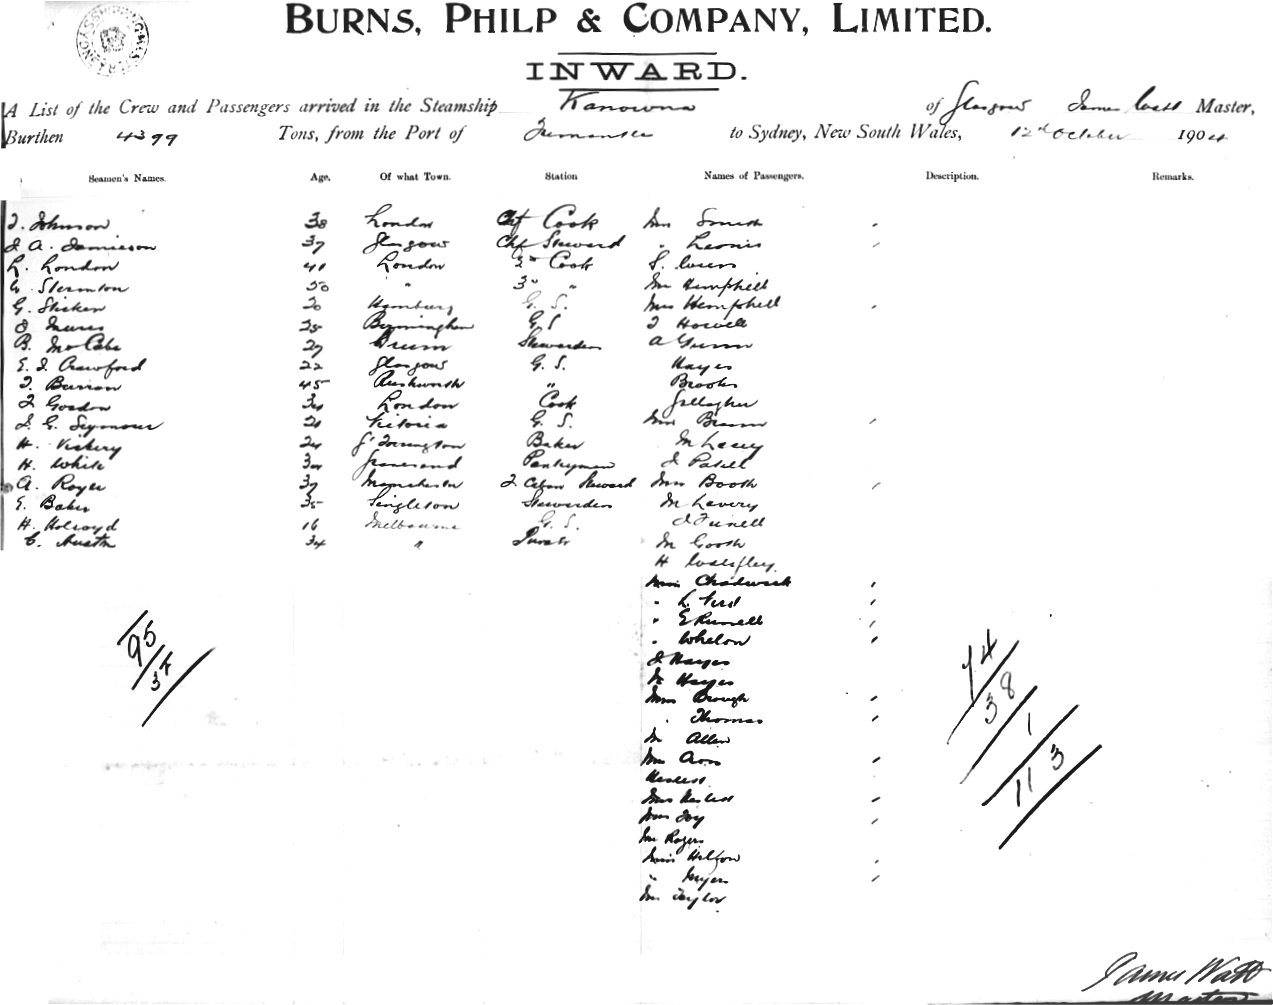 BURNS, PHILP & COMPANY, LIMITED.
INWARD.
A List of the Crew and Passengers arrived in the Steamship Kanowna of Glasgow James Watt Master,
Burthen 4399 Tons, from the Port of Fremantle to Sydney, New South Wales, 12th October 1904
Seamen's Names. Age. Of what Town. Station Names of Passengers. Description. Remarks.
J. Johnson 38 London Chf Cook Mrs Smith
J A. Jamieson 37 Glasgow Chf Steward "
L. London 41 London 2nd Cook S.
G. 50 " 3rd " Mr Hemphill
G. 20 Hamburg G. S. Mrs Hemphill
25 Birmingham G S J Howell
B. McCabe 27 Stewardess A Gunn
E. J. Crawford 22 Glasgow G. S. Hayes
45 Rushworth " Brooks
J Gordon 34 London Cook Gallagher
J. G. Seymour 21 Victoria G. S. Mrs
H. Vickery 24 Baker M Lacey
H. White 34 Gravesend Pantryman J Patell
A. Royer 37 Manchester 2 Cabin Steward Mrs Booth
E. Baker 35 Singleton Stewardess M Lavery
H. Holroyd 16 Melbourne G. S. J
C. Austin 34 " M Gooch
H
Miss Chadwick
" L.
" E Russell
" Whelan
J Hayes
M Hayes
Mrs Brough
" Thomas
Mr Allen
Mrs
Mrs
Mrs Joy
Mr Rogers
Miss
" Myers
Mr Taylor
95
37
74
38
1
113
James Watt
Master